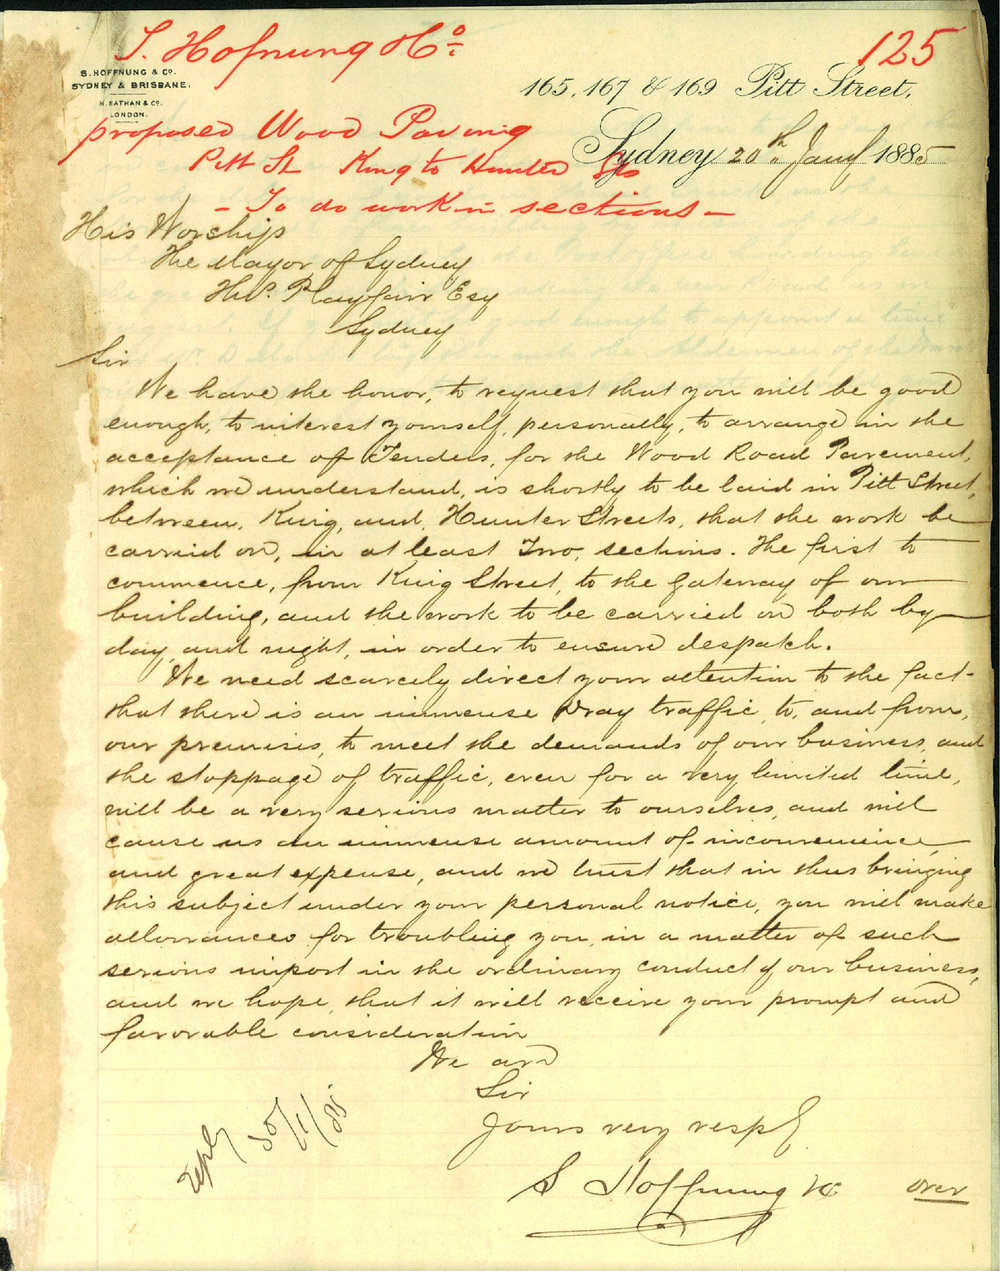 S. Hofnung & Co.
125
S. HOFFNUNG & CO.
SYDNEY & BRISBANE.
H. NATHAN & CO.
LONDON.
165, 167 & 169 Pitt Street,
proposed Wood Paving
Sydney 20th Jany 1885
Pitt St King to Hunter Sts
- To do work in sections -
His Worship
The Mayor of Sydney
Playfair Esq
Sydney
Sir
We have the honor, to request that you will be good
enough, to interest yourself, personally, to arrange in the
acceptance of Tenders, for the Wood Road Pavement,
which we understand, is shortly to be laid in Pitt Street,
between, King, and, Hunter Streets, that the work be
carried on, in at least Two, sections. The first to
commence, from King Street, to the gateway of our
building, and the work to be carried on both by
day, and night, in order to ensure despatch.
We need scarcely direct your attention to the fact
that there is an immense Dray traffic, to, and from,
our premises, to meet the demands of our business, and
the stoppage of traffic, even for a very limited time,
will be a very serious matter to ourselves, and will
cause us an immense amount of inconvenience,
and great expense, and we trust that in thus bringing
this subject under your personal notice, you will make
allowances for troubling you, in a matter of such
serious import in the ordinary conduct of our business,
and we hope, that it will receive your prompt and
favorable consideration
We are
Sir
Yours very respy
S Hoffnung & Co
over
reply 30/1/85